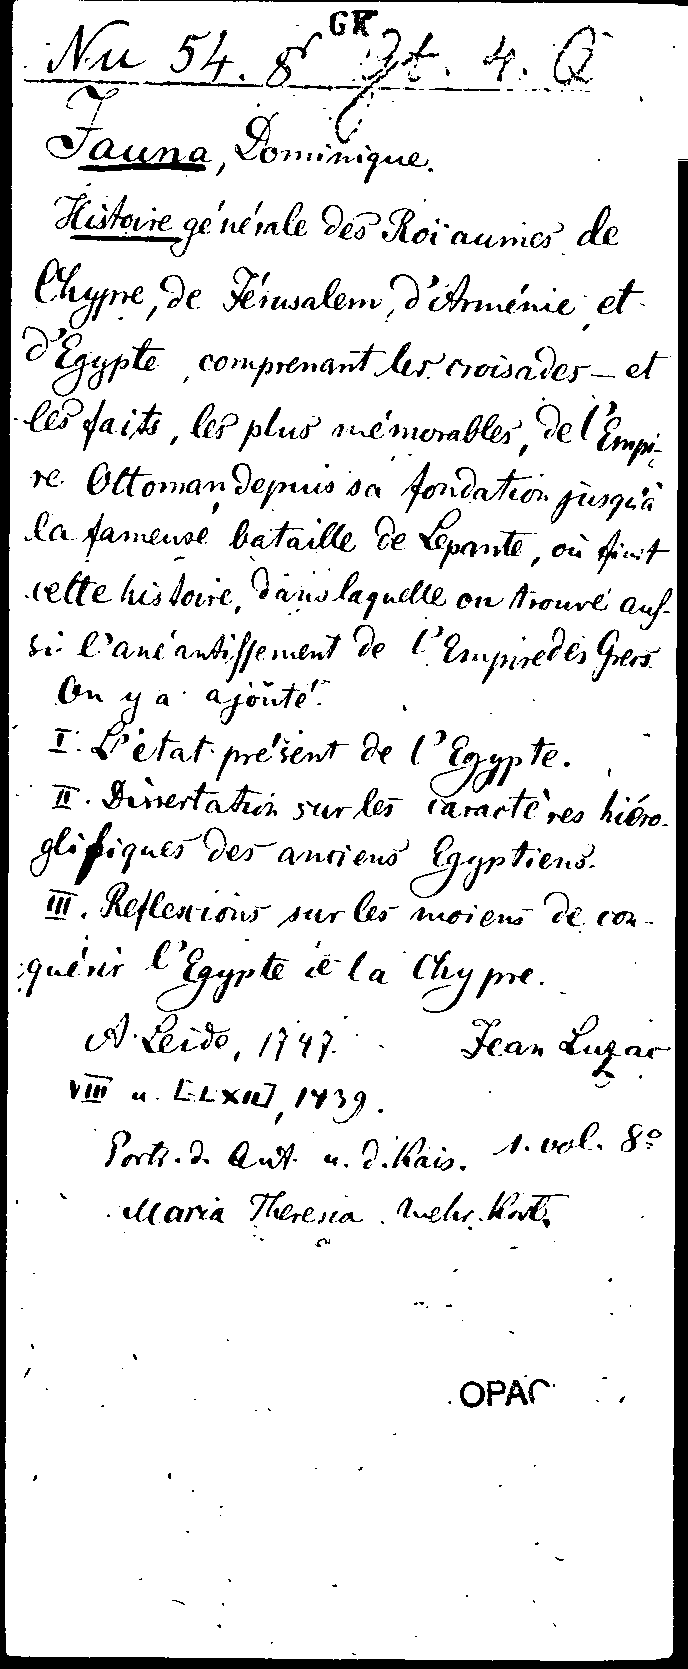 GK
Nu 54. 8r gt. 4. Q
Jauna, Dominique.
Histoire générale des Roïaumes de
Chypre, de Jérusalem, d'Arménie et
d'Egypte, comprenant les croisades — et
les faits, les plus mémorables, de l'Empi-
re Ottoman depuis sa fondation jusqu'à
la fameuse bataille de Lepante, où finit
cette histoire, dans laquelle on trouve auf-
si l'anéantiffement de l'Empire des Grecs.
On y a ajoûté.
I. L'état présent de l'Egypte.
II. Dissertation sur les caractères hiéro-
glifiques des anciens Egyptiens.
III. Reflexions sur les moiens de con-
quérir l'Egypte & la Chypre.
A Leide, 1747. Jean Luzac
VIII u. [LXII], 1439.
Portr. d. Aut. u. d. Kais. 1. vol. 8°
Maria Theresia. mehr. Kart.
OPAC